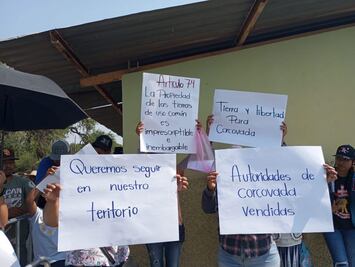 Artículo 74
La Propiedad
de las tierras
de uso común
es
imprescriptible
inembargable
Tierra y libertad
Para
Corcovada
Queremos seguir
en nuestro
territorio
Autoridades de
corcovada
vendidas